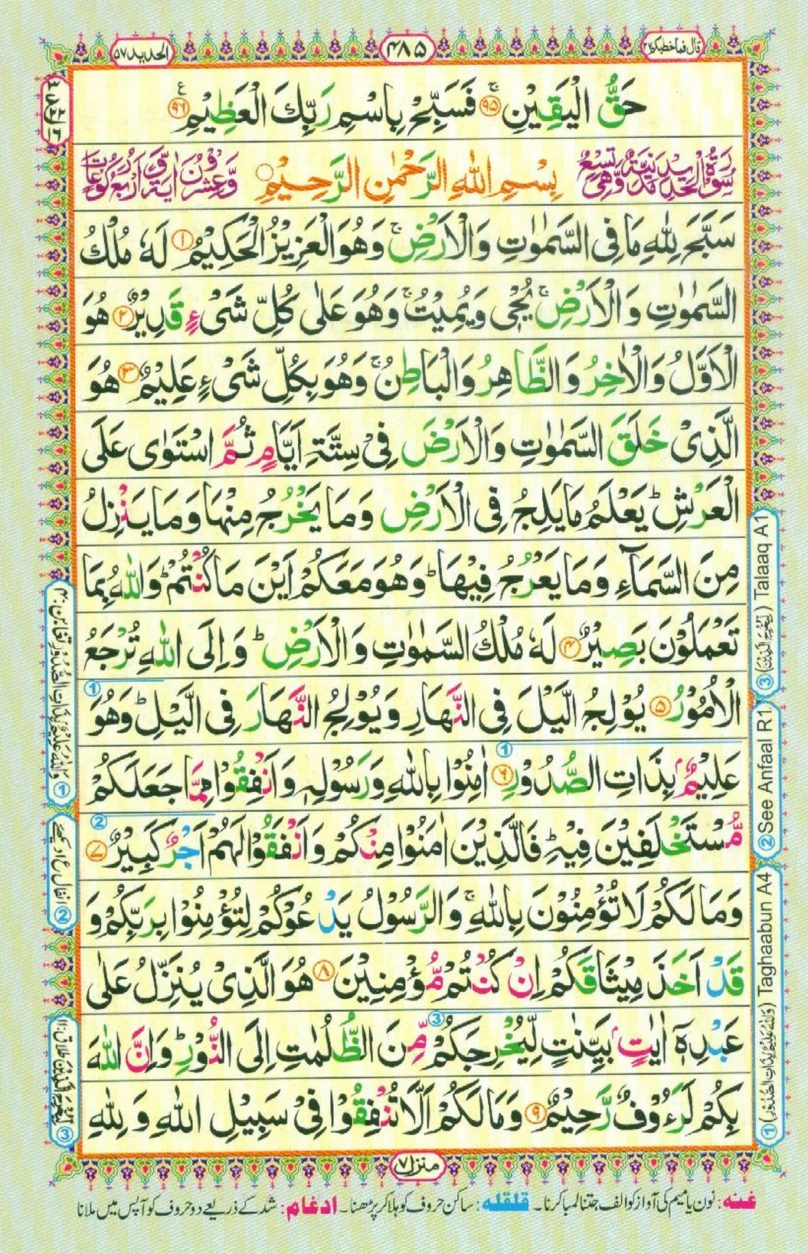 قال فما خطبکم ٢٧
٤٨٥
الحدید ٥٧
حَقُّ الْیَقِیْنِ ۚ﴿۹۵﴾ فَسَبِّحْ بِاسْمِ رَبِّكَ الْعَظِیْمِ ﴿۹۶﴾ ع
سُوْرَةُ الْحَدِیْدِ مَدَنِیَّةٌ وَّهِیَ تِسْعٌ وَّعِشْرُوْنَ اٰیَةً وَّاَرْبَعُ رُكُوْعَاتٍ
بِسْمِ اللّٰهِ الرَّحْمٰنِ الرَّحِیْمِ
سَبَّحَ لِلّٰهِ مَا فِی السَّمٰوٰتِ وَ الْاَرْضِ ۚ وَهُوَ الْعَزِیْزُ الْحَكِیْمُ ﴿۱﴾ لَهٗ مُلْكُ
السَّمٰوٰتِ وَ الْاَرْضِ ۚ یُحْیٖ وَیُمِیْتُ ۚ وَهُوَ عَلٰی كُلِّ شَیْءٍ قَدِیْرٌ ﴿۲﴾ هُوَ
الْاَوَّلُ وَ الْاٰخِرُ وَ الظَّاهِرُ وَ الْبَاطِنُ ۚ وَهُوَ بِكُلِّ شَیْءٍ عَلِیْمٌ ﴿۳﴾ هُوَ
الَّذِیْ خَلَقَ السَّمٰوٰتِ وَ الْاَرْضَ فِیْ سِتَّةِ اَیَّامٍ ثُمَّ اسْتَوٰی عَلَی
الْعَرْشِ ؕ یَعْلَمُ مَا یَلِجُ فِی الْاَرْضِ وَمَا یَخْرُجُ مِنْهَا وَمَا یَنْزِلُ
مِنَ السَّمَآءِ وَمَا یَعْرُجُ فِیْهَا ؕ وَهُوَ مَعَكُمْ اَیْنَ مَا كُنْتُمْ ؕ وَاللّٰهُ بِمَا
تَعْمَلُوْنَ بَصِیْرٌ ﴿۴﴾ لَهٗ مُلْكُ السَّمٰوٰتِ وَ الْاَرْضِ ؕ وَ اِلَی اللّٰهِ تُرْجَعُ
الْاُمُوْرُ ﴿۵﴾ یُوْلِجُ الَّیْلَ فِی النَّهَارِ وَ یُوْلِجُ النَّهَارَ فِی الَّیْلِ ؕ وَهُوَ
عَلِیْمٌۢ بِذَاتِ الصُّدُوْرِ ﴿۶﴾ اٰمِنُوْا بِاللّٰهِ وَرَسُوْلِهٖ وَ اَنْفِقُوْا مِمَّا جَعَلَكُمْ
مُّسْتَخْلَفِیْنَ فِیْهِ ؕ فَالَّذِیْنَ اٰمَنُوْا مِنْكُمْ وَ اَنْفَقُوْا لَهُمْ اَجْرٌ كَبِیْرٌ ﴿۷﴾
وَمَا لَكُمْ لَا تُؤْمِنُوْنَ بِاللّٰهِ ۚ وَ الرَّسُوْلُ یَدْعُوْكُمْ لِتُؤْمِنُوْا بِرَبِّكُمْ وَ
قَدْ اَخَذَ مِیْثَاقَكُمْ اِنْ كُنْتُمْ مُّؤْمِنِیْنَ ﴿۸﴾ هُوَ الَّذِیْ یُنَزِّلُ عَلٰی
عَبْدِهٖۤ اٰیٰتٍۭ بَیِّنٰتٍ لِّیُخْرِجَكُمْ مِّنَ الظُّلُمٰتِ اِلَی النُّوْرِ ؕ وَ اِنَّ اللّٰهَ
بِكُمْ لَرَءُوْفٌ رَّحِیْمٌ ﴿۹﴾ وَمَا لَكُمْ اَلَّا تُنْفِقُوْا فِیْ سَبِیْلِ اللّٰهِ وَ لِلّٰهِ
③ Talaaq A1
② See Anfaal R1
① (وَاللّٰهُ عَلِیْمٌۢ بِذَاتِ الصُّدُوْرِ) Taghaabun A4
منزل ۷
غنه: نون یا میم کی آواز کو الف جتنا لمبا کرنا۔ قلقله: ساکن حروف کو ہلا کر پڑھنا۔ ادغام: شد کے ذریعے دو حروف کو آپس میں ملانا